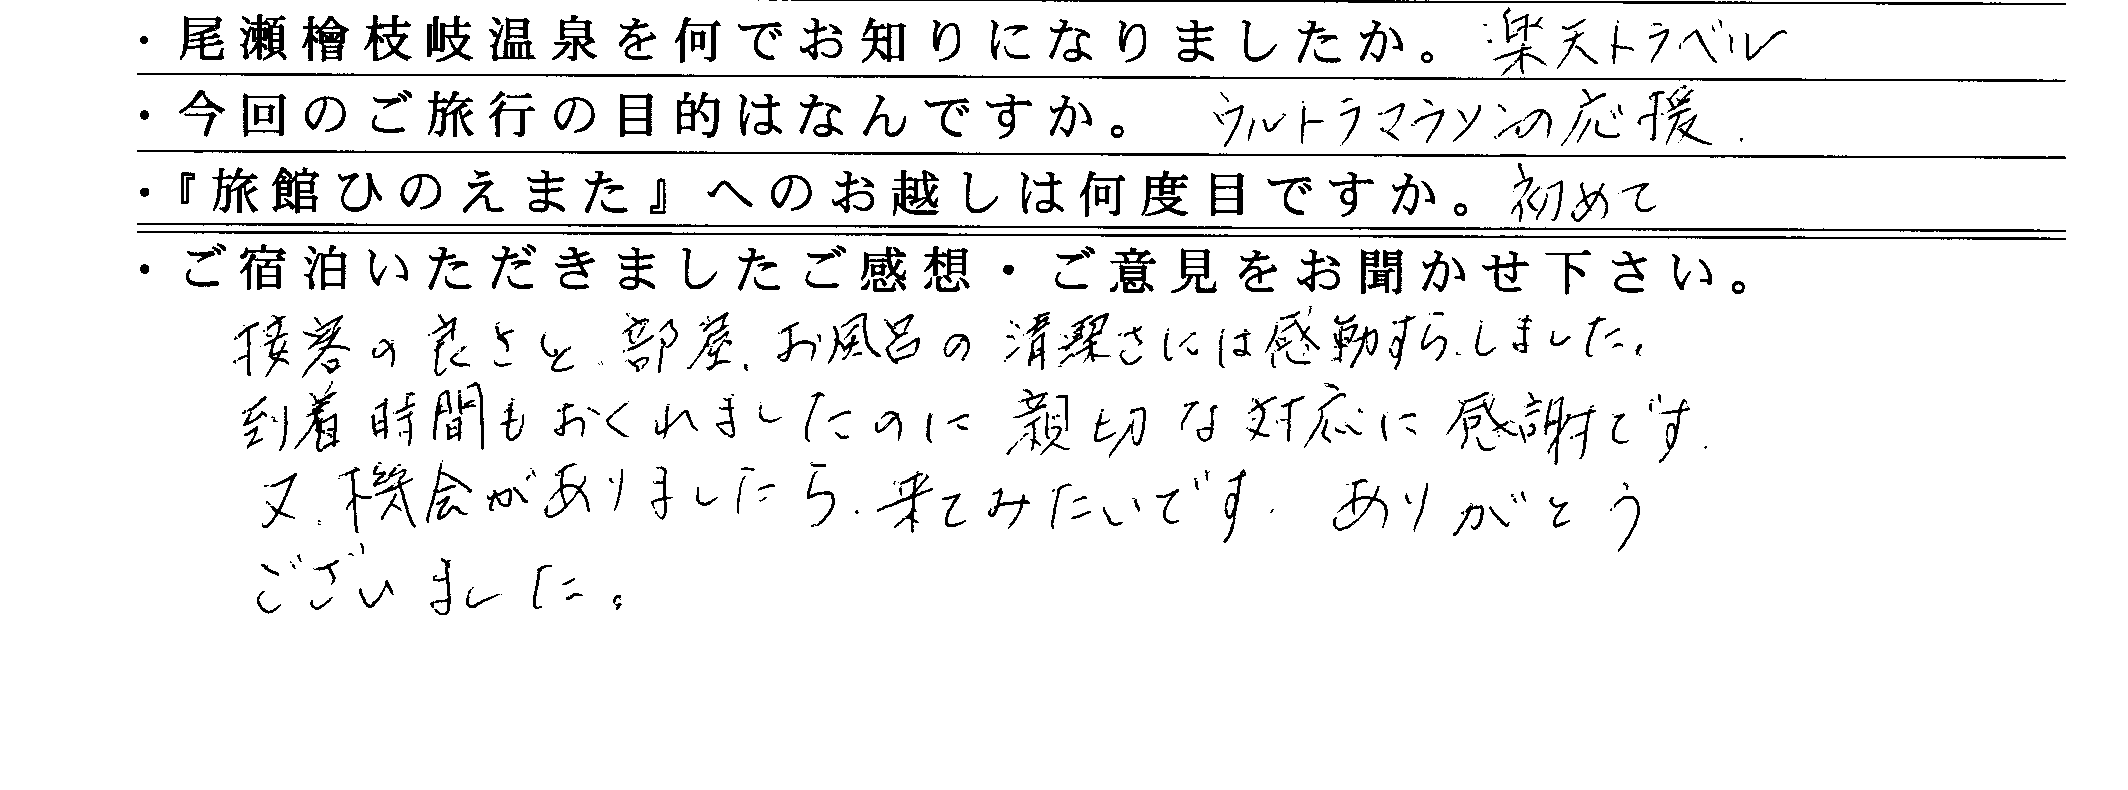 ・尾瀬檜枝岐温泉を何でお知りになりましたか。楽天トラベル
・今回のご旅行の目的はなんですか。 ウルトラマラソンの応援.
・『旅館ひのえまた』へのお越しは何度目ですか。初めて
・ご宿泊いただきましたご感想・ご意見をお聞かせ下さい。
接客の良さと、部屋、お風呂の清潔さには感動すら、しました。
到着時間もおくれましたのに親切な対応に感謝です.
又、機会がありましたら、来てみたいです. ありがとう
ございました。